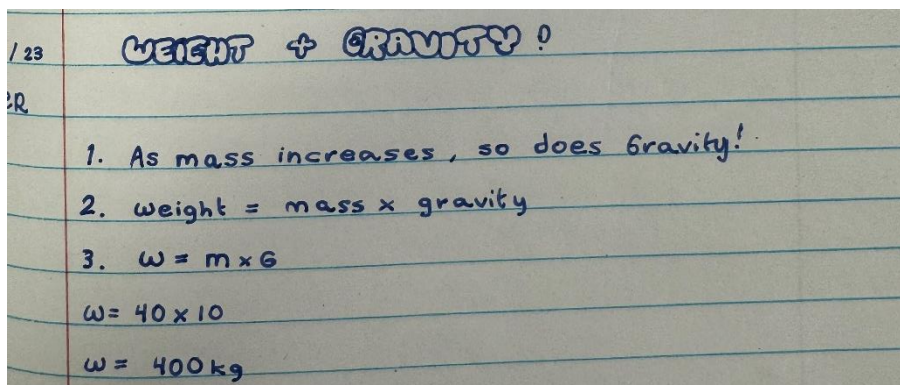 /23
WEIGHT + GRAVITY!
ER
1. As mass increases, so does Gravity!
2. weight = mass x gravity
3. W = m x G
W = 40 x 10
W = 400kg